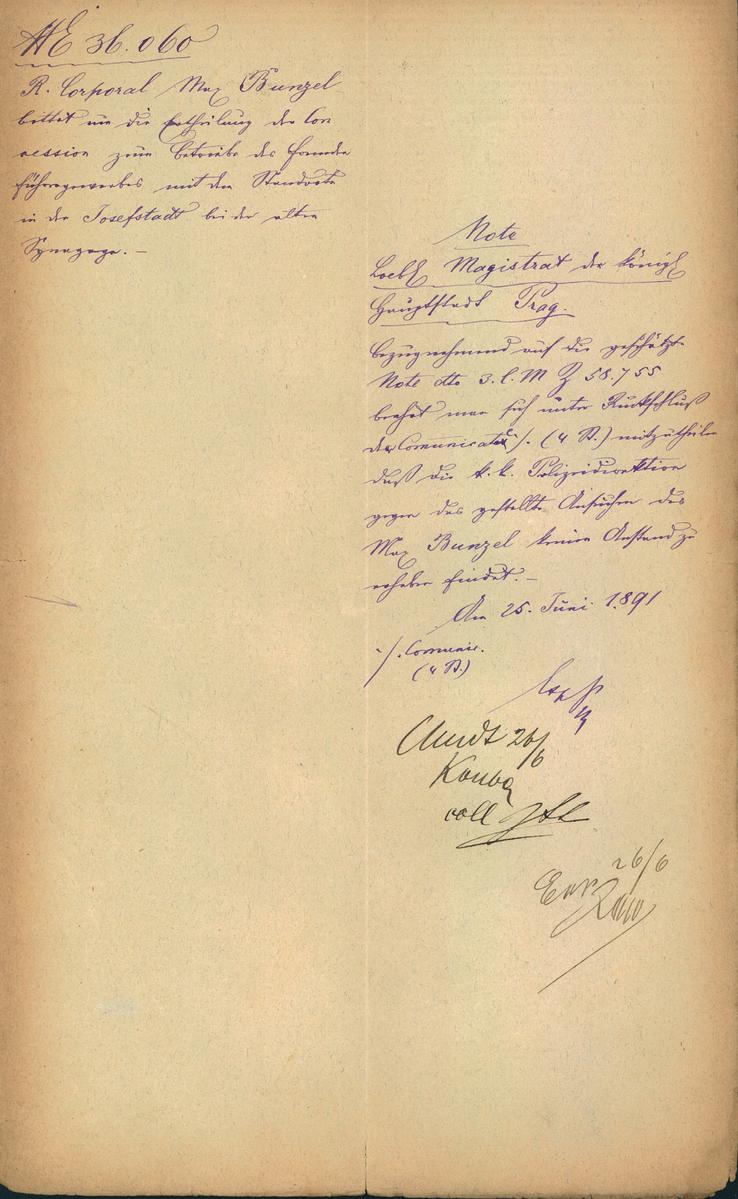 NE 36.060
R. Corporal Max Bunzel
bittet um die Ertheilung der Con
cession zum Betriebe des Fremden
führergewerbes mit dem Standorte
in der Josefstadt bei der alten
Synagoge. –
Note
Löbl Magistrat der königl
Hauptstadt Prag.
Bezugnehmend auf die geschätzte
Note dto 3. l. M Z 58.755
beehrt man sich unter Rückschluß
der Comunicate ·/. (4 St.) mitzutheilen
daß die k. k. Polizeidirektion
gegen das gestellte Ansuchen des
Max Bunzel keinen Anstand zu
erheben findet. –
Am 25. Juni 1891
·/. Comunic.
(4 St.)
26/6
Kouba
coll
26/6